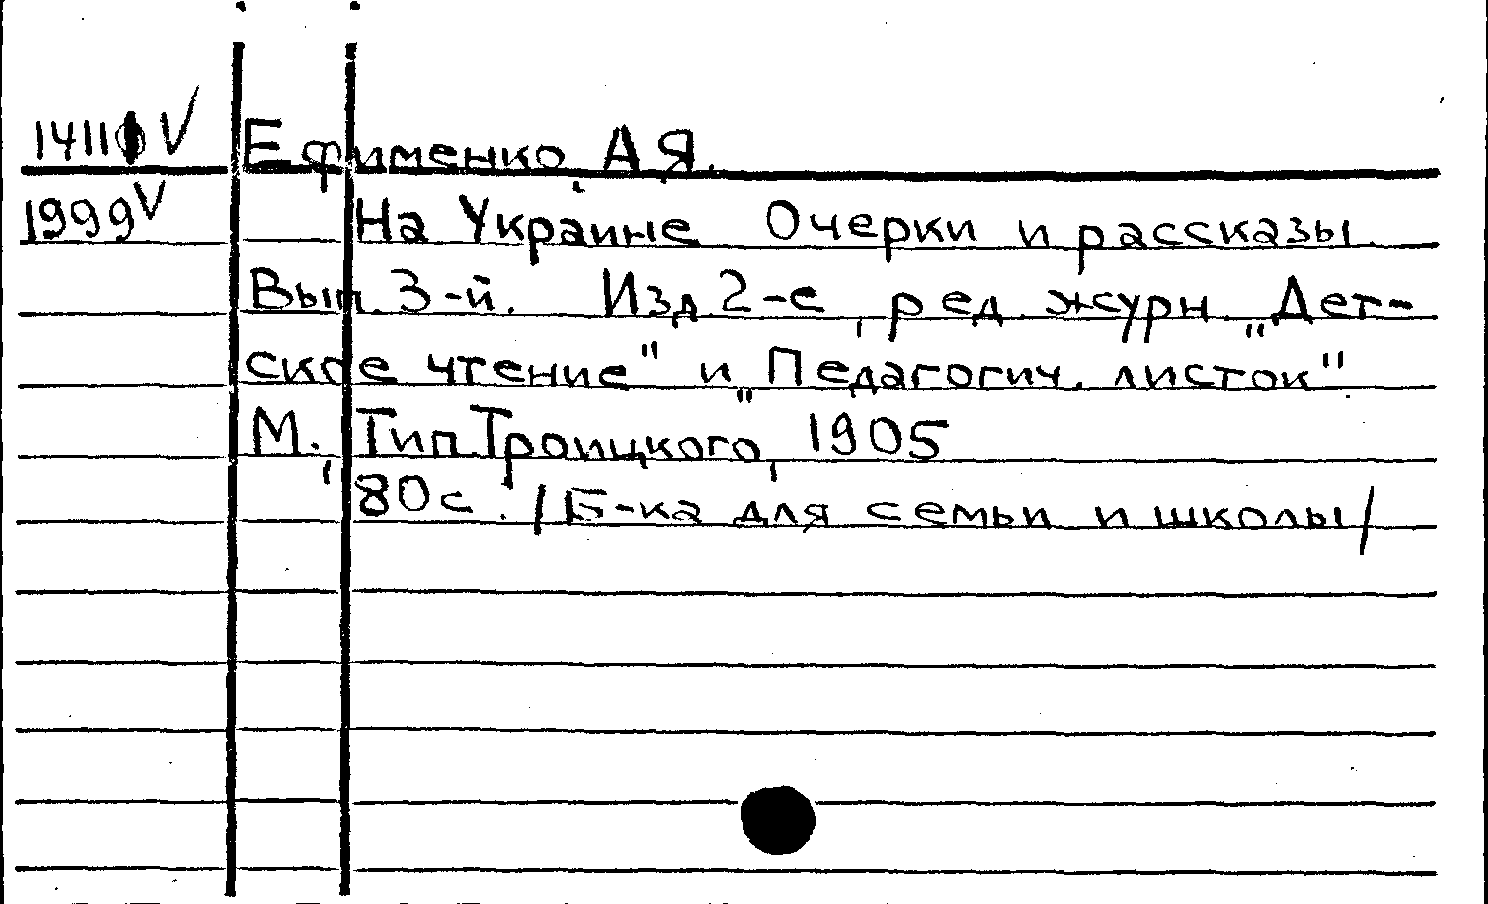 V Ефименко, А Я.
1999 V На Украине Очерки и рассказы.
Вып. 3-й. Изд 2-е, ред. журн. „Дет-
ское чтение" и „Педагогич. листок"
М., Тип. Троицкого, 1905
80 с. /Б-ка для семьи и школы/